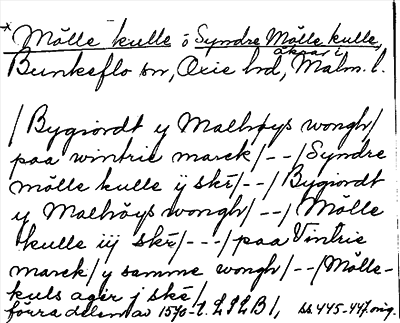 * Mölle kulle o Syndre Mölle kulle,
åkrar i
Bunkeflo sn, Oxie hd, Malm. l.
/Bygiordt y Malhøys wongh/
paa wintrie marck/--/Syndre
mölle kulle ij skē/--/Bygiordt
y Malhöys wongh/--/Mölle
kulle iij skē/---/paa Vintrie
marck/y samme wongh/--/Mölle-
kuls ager j skē/
förra delen av 1570-t. LSLB1, ss 445-447. orig.